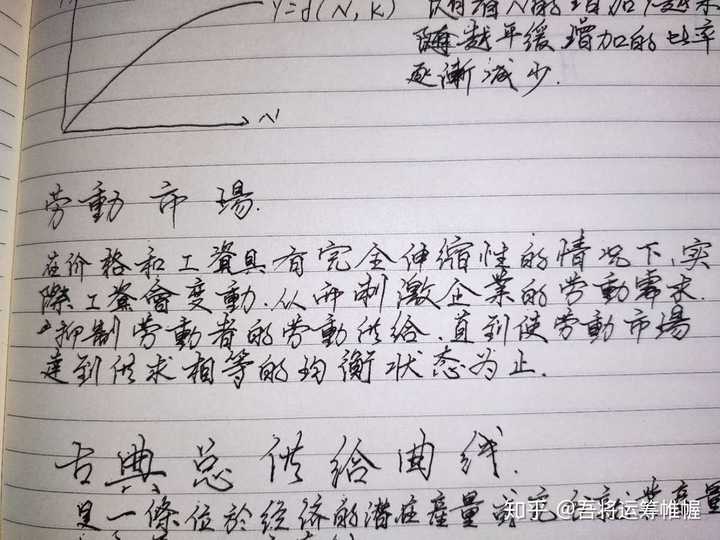 y=f(N,K) 随着N的增加
越平缓增加的比率
逐渐减少.
N
劳動市場.
在价格和工資具有完全伸缩性的情况下,实
際工資會变動.从而刺激企業的劳動需求.
抑制劳動者的劳動供给.直到使劳動市場
達到供求相等的均衡状态为止.
古典总供给曲线.
是一條位於经济的潜在産量或
知乎 @吾将运筹帷幄